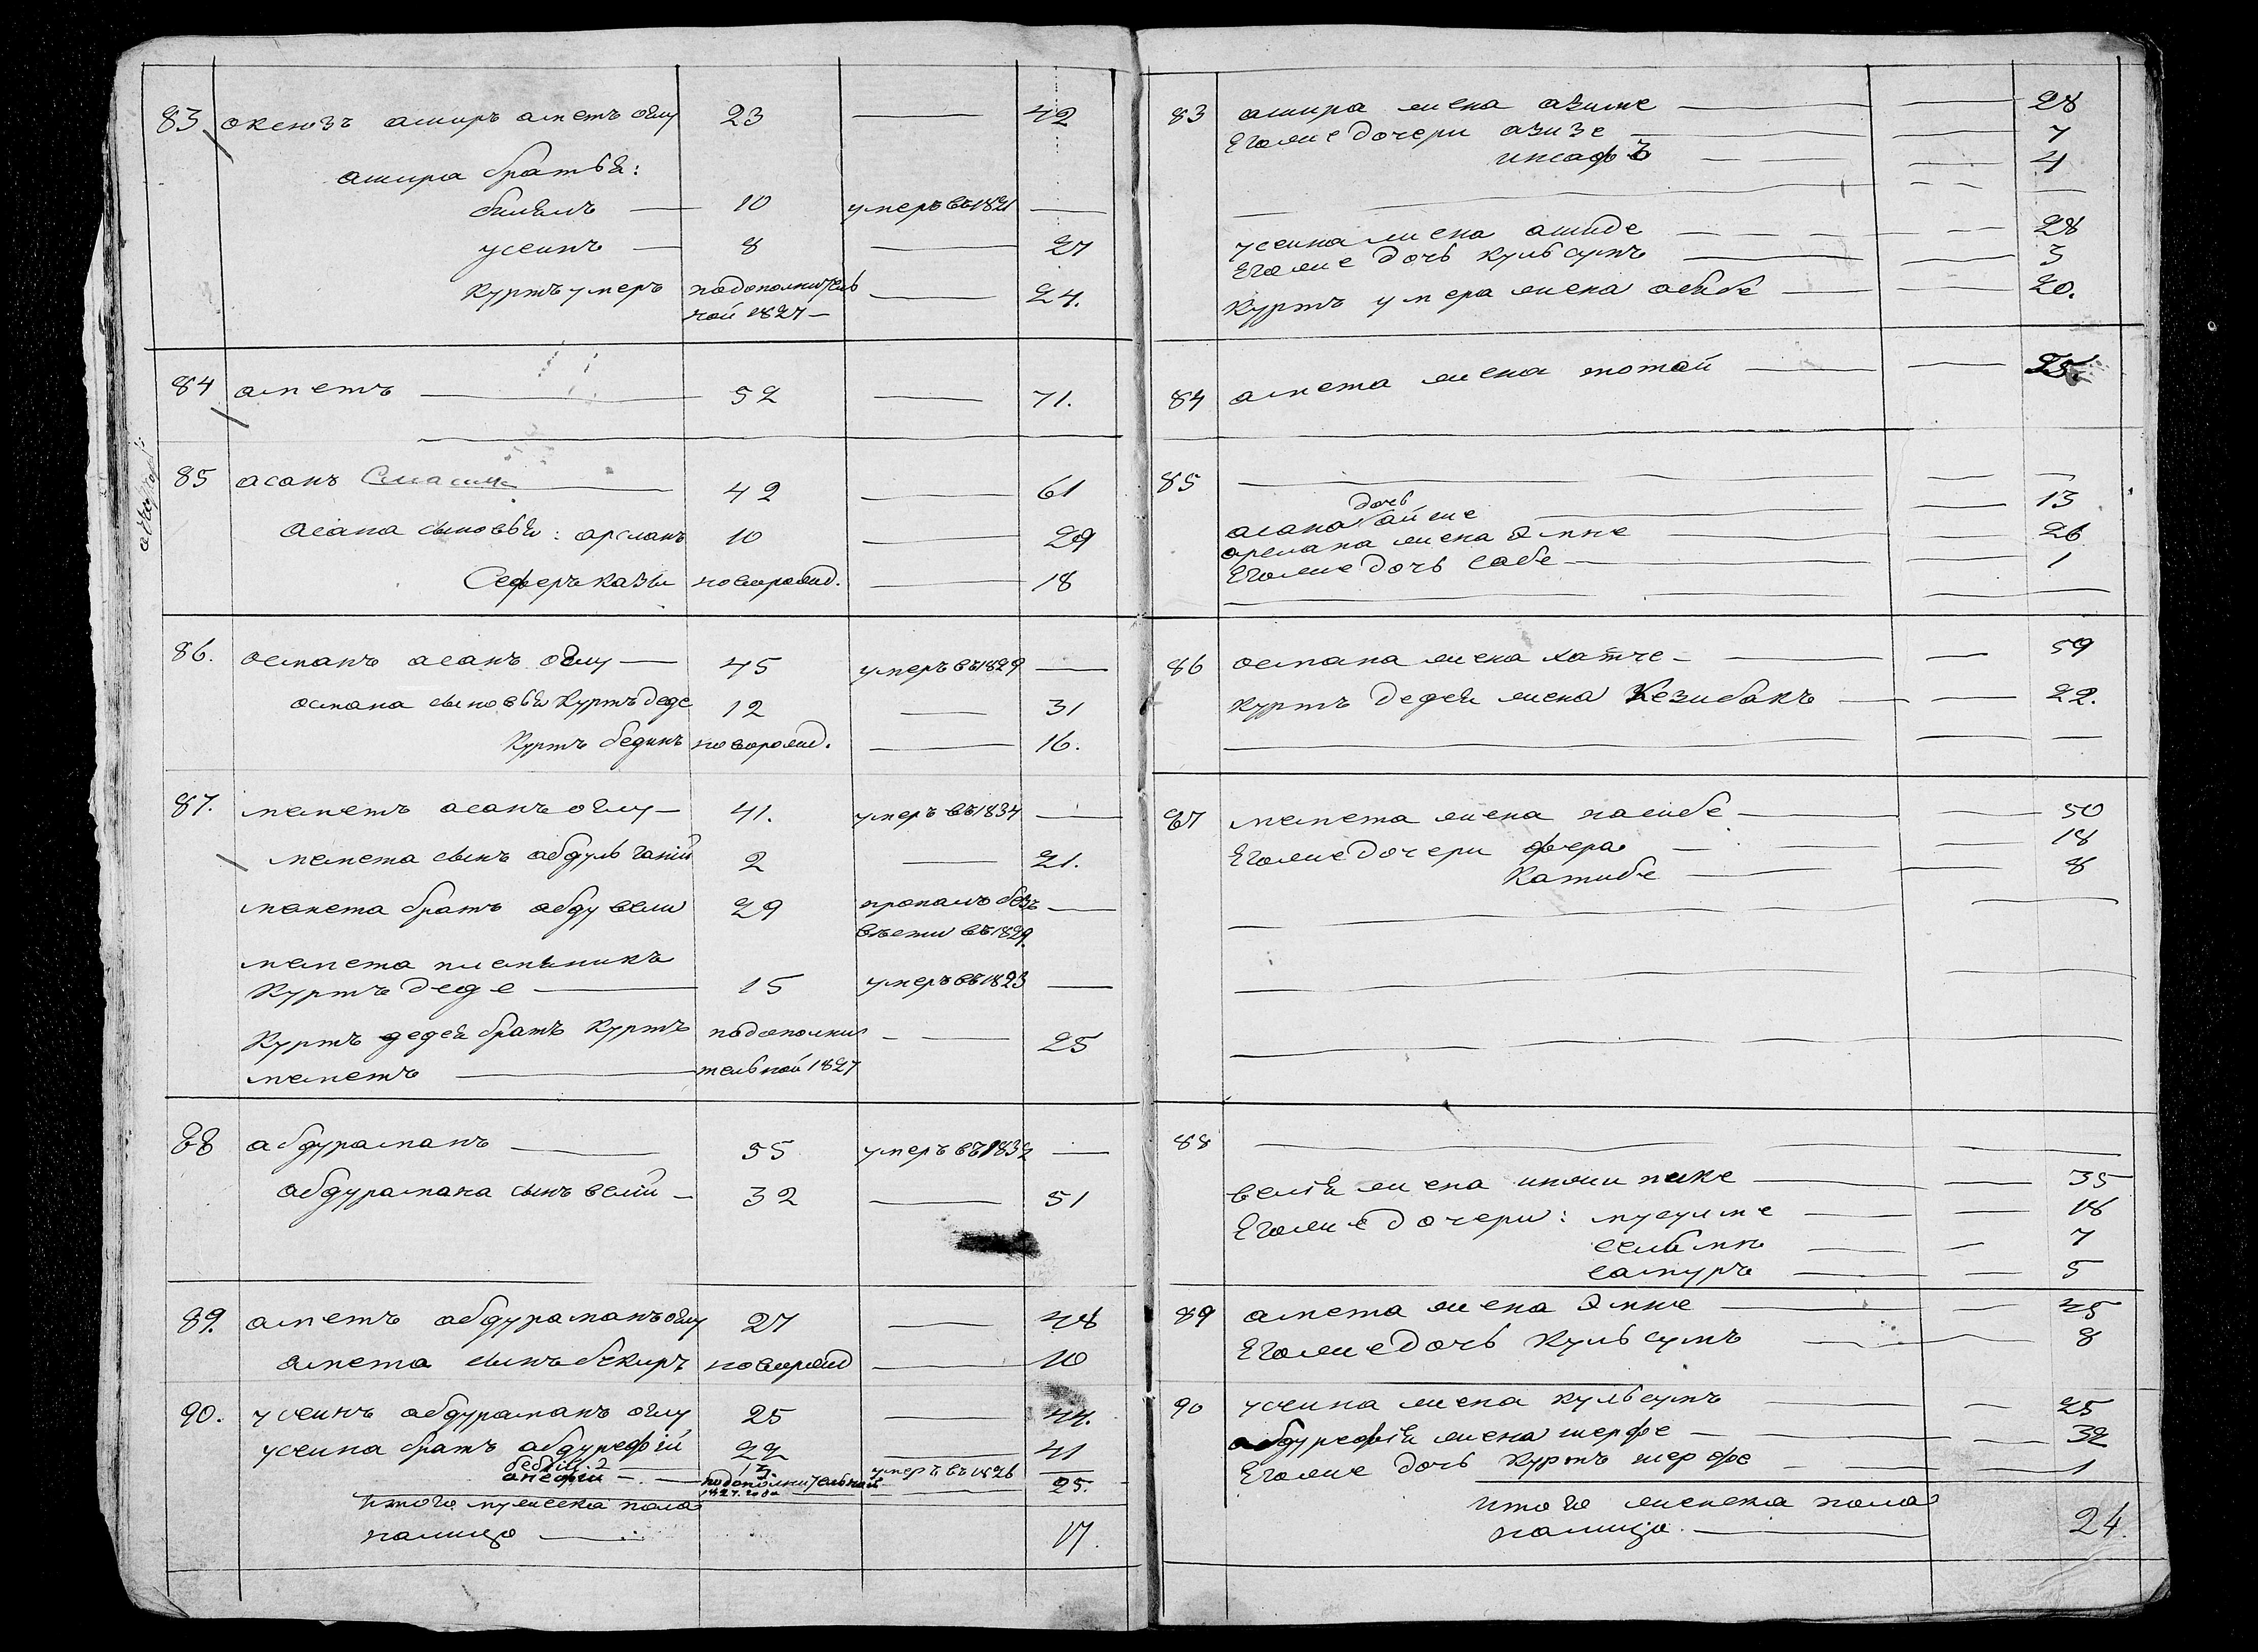 83 оксюзъ аширъ аметъ оглу 23 — 42
ашира братья:
билялъ — 10 умеръ въ 1821 —
усеинъ — 8 — 27
Куртъ умеръ подополнитель — 24.
ной 1827 —
84 аметъ — 52 — 71.
85 асанъ — 42 — 61
асана сыновья: арсланъ 10 — 29
Сеферъ казы новорожд. — 18
86. османъ асанъ оглу — 45 умеръ въ 1829 —
османа сыновья Куртъ деде 12 — 31
Куртъ бединъ новорожд. — 16.
87. меметъ асанъ оглу — 41. умеръ въ 1834 —
мемета сынъ абдуль ганiй 2 — 21.
мемета братъ абду вели 29 пропалъ безъ —
вѣсти въ 1829.
мемета племянникъ
Куртъ деде — 15 умеръ въ 1823 —
Куртъ дедея братъ Куртъ подополни — 25
меметъ — тельной 1827
88 абдураманъ — 55 умеръ въ 1832 —
абдурамана сынъ велiй — 32 — 51
89. аметъ абдураманъ оглу 27 — 48
амета сынъ бекиръ новорожд — 10
90. усеинъ абдураманъ оглу 25 — 44.
усеина братъ абдурефiй 22 — 41
умеръ въ 1826 —
подополнительной — 25.
1827. года
Итого мужеска пола
налицо — 17.
83 ашира жена азиме — 28
Егоже дочери азизе — 7
инсафъ — 4
усеина жена ашиде — 28
Егоже дочь кульсумъ — 3
Куртъ умера жена абибе — 20.
84 амета жена тотай — 25.
85 —
дочь
асана айше — 13
арслана жена Эмине — 26
Егоже дочь сабе — 1
86 османа жена хатче — 59
Куртъ дедея жена Кезибакъ — 22.
87 мемета жена насибе — 50
Егоже дочери фера — 18
Катибе — 8
88 —
велiя жена инжи пике — 35
Егоже дочери: мусулме — 18
сельмѣ — 7
сатуръ — 5
89 амета жена Эмине — 45
Егоже дочь Кульсумъ — 8
90 усеина жена кульсумъ — 25
абдурефiя жена шерфе — 32
Егоже дочь Куртъ шерфе — 1
Итого женска пола
налицо. — 24.